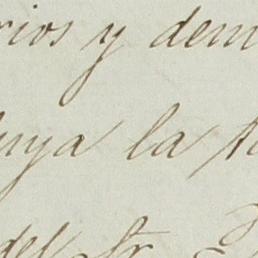 rios y dem
uya la
del Sr.